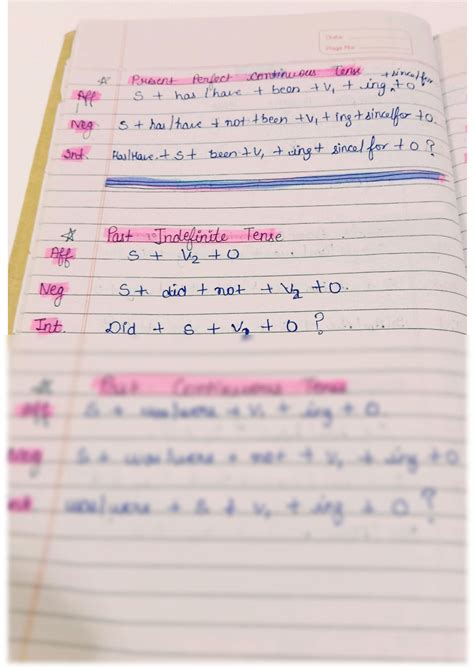 Date:
Page No:
☆ Present Perfect Continuous Tense + since/for
Aff S + has/have + been + V₁ + ing + O
Neg S + has/have + not + been + V₁ + ing + since/for + O.
Int. Has/Have + S + been + V₁ + ing + since/for + O ?
☆ Past Indefinite Tense
Aff S + V₂ + O
Neg S + did + not + V₂ + O.
Int. Did + S + V₂ + O ?
☆ Past Continuous Tense
Aff S + was/were + V₁ + ing + O.
Neg S + was/were + not + V₁ + ing + O
Int was/were + S + V₁ + ing + O ?